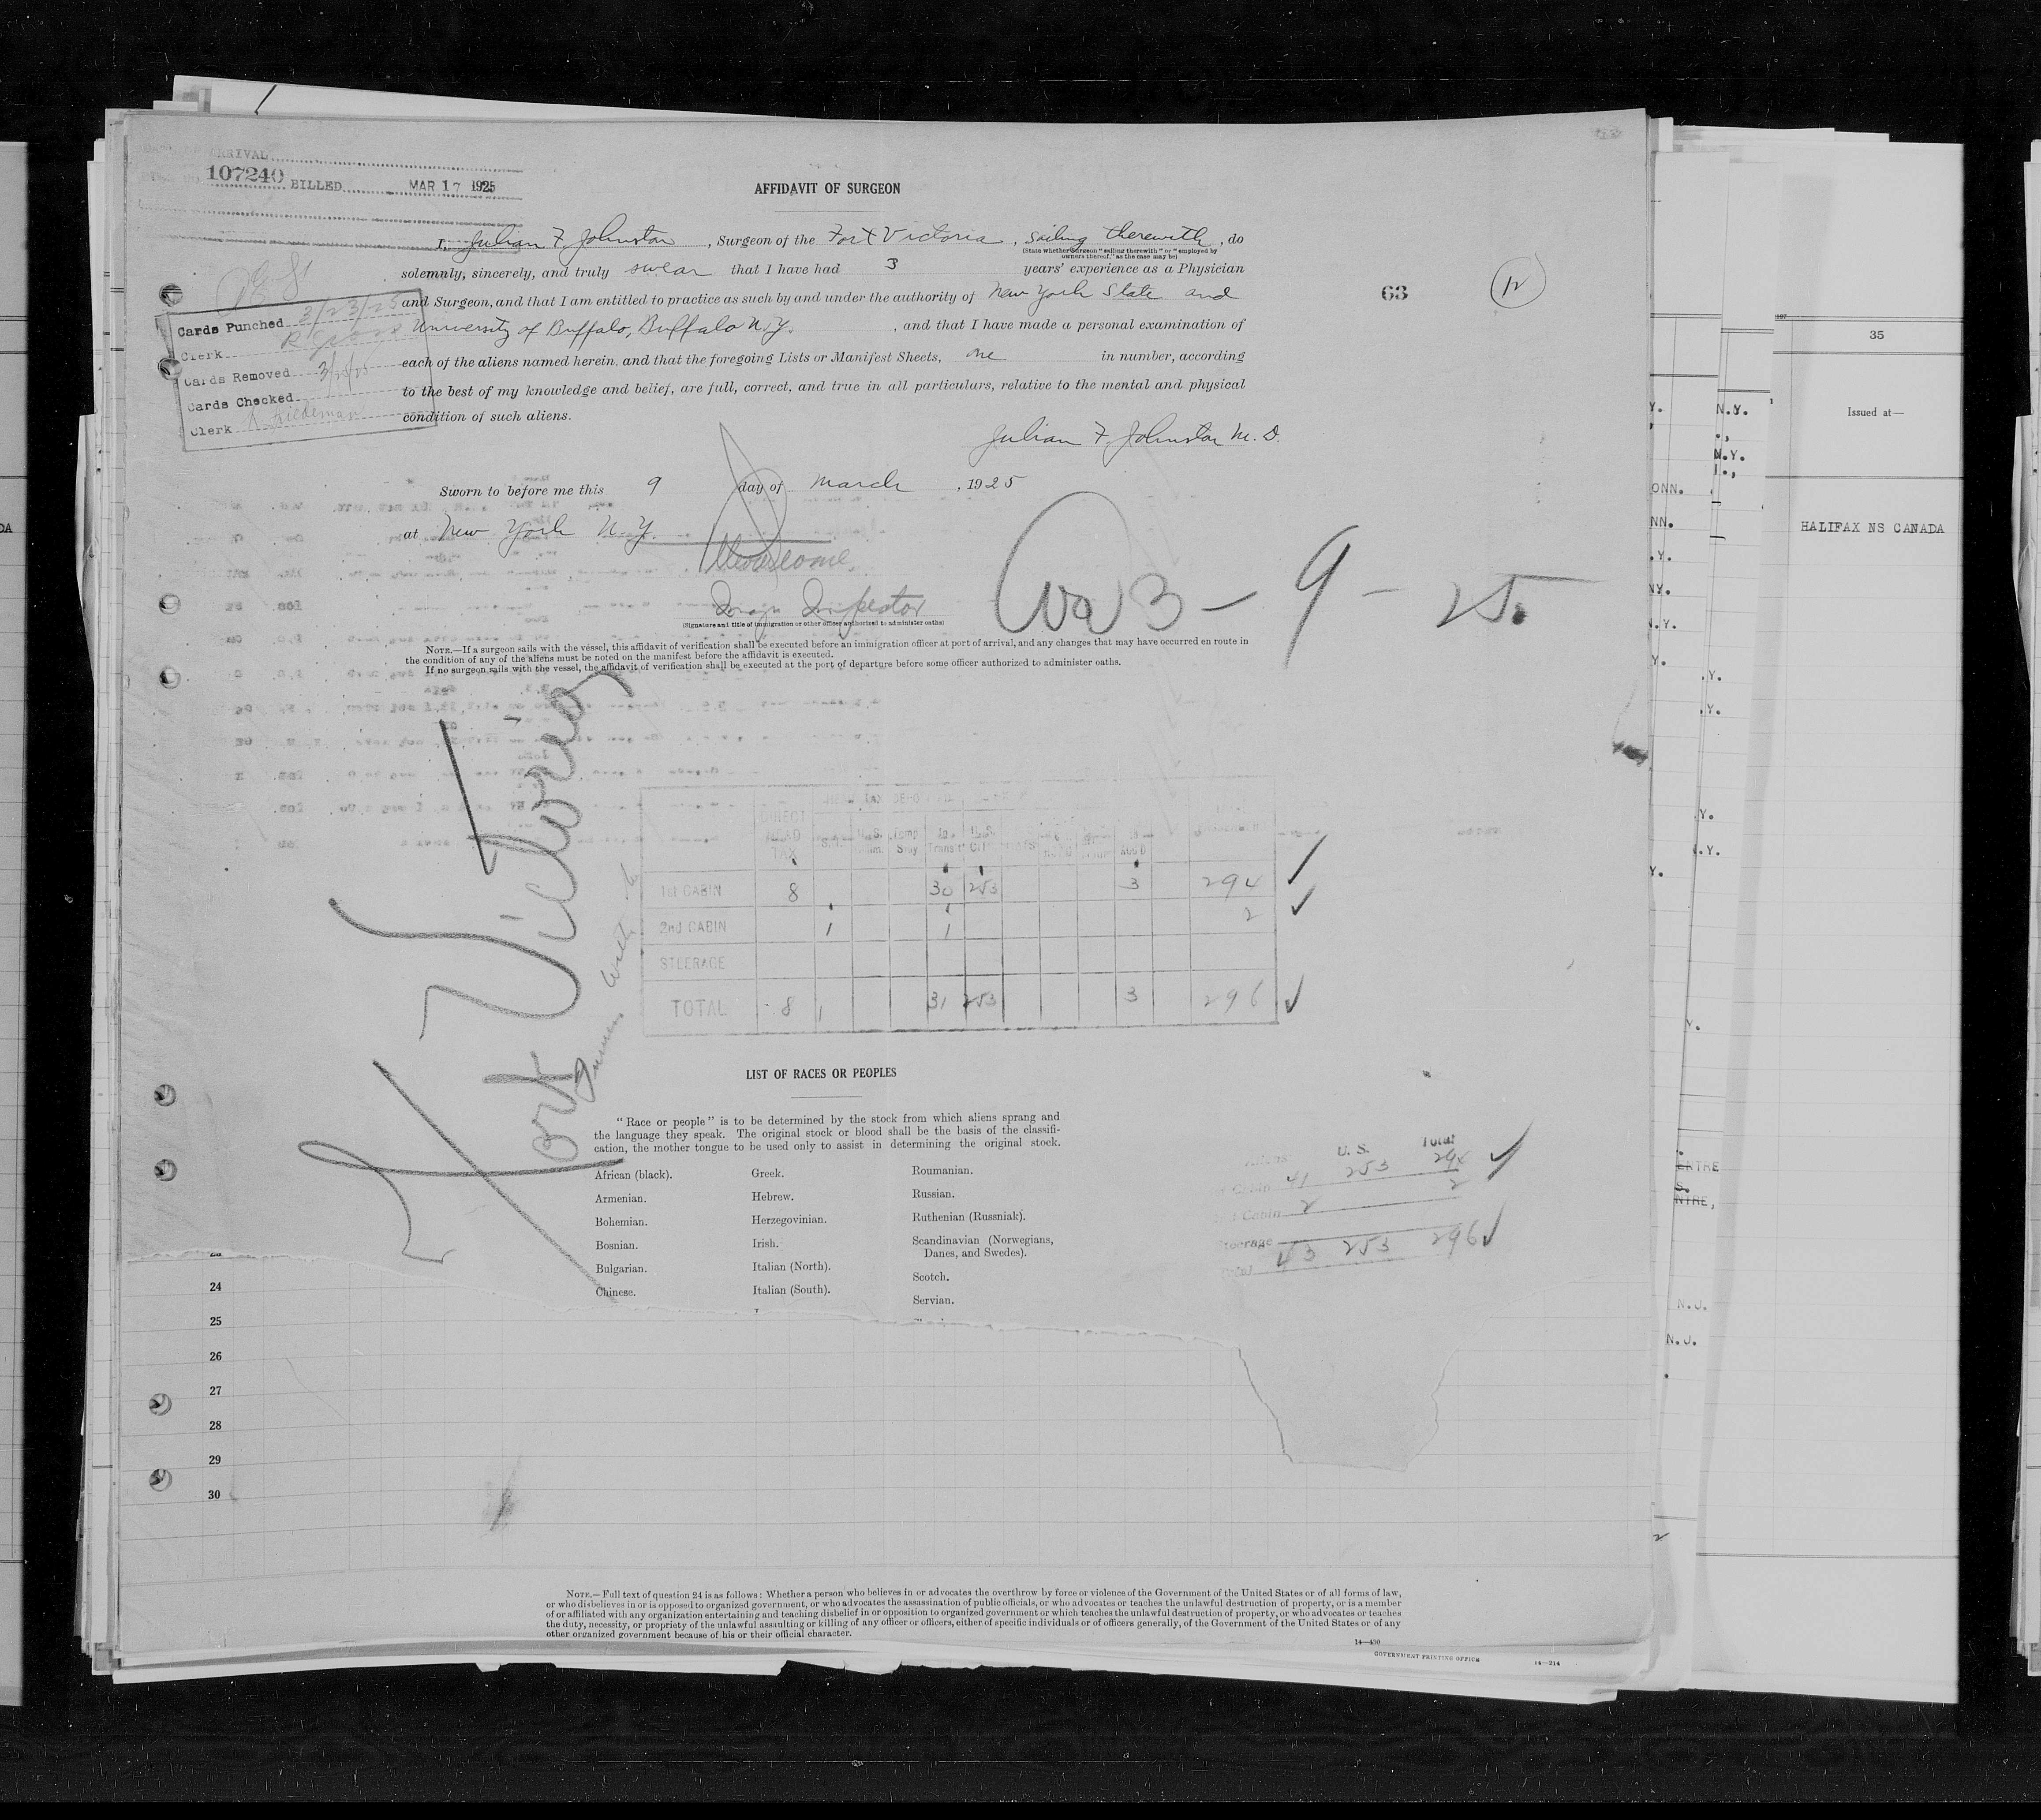 ARRIVAL
107240 BILLED MAR 17 1925
AFFIDAVIT OF SURGEON
I, Julian F. Johnston, Surgeon of the Fort Victoria, sailing therewith, do
(State whether surgeon "sailing therewith" or "employed by
owners thereof," as the case may be)
solemnly, sincerely, and truly swear that I have had 3 years' experience as a Physician
and Surgeon, and that I am entitled to practice as such by and under the authority of New York State and
University of Buffalo, Buffalo N.Y., and that I have made a personal examination of
each of the aliens named herein, and that the foregoing Lists or Manifest Sheets, one in number, according
to the best of my knowledge and belief, are full, correct, and true in all particulars, relative to the mental and physical
condition of such aliens.
63
12
Cards Punched 3/23/25
Clerk
Cards Removed
Cards Checked
Clerk
Julian F. Johnston M.D.
Sworn to before me this 9 day of March, 1925
at New York N.Y.
Inspector
(Signature and title of immigration or other officer authorized to administer oaths)
3-9-25
NOTE.—If a surgeon sails with the vessel, this affidavit of verification shall be executed before an immigration officer at port of arrival, and any changes that may have occurred en route in
the condition of any of the aliens must be noted on the manifest before the affidavit is executed.
If no surgeon sails with the vessel, the affidavit of verification shall be executed at the port of departure before some officer authorized to administer oaths.
Fort Victoria
DIRECT HEAD TAX
1st CABIN 8 30 253 3 294
2nd CABIN 1 1 2
STEERAGE
TOTAL 8 1 31 253 3 296
LIST OF RACES OR PEOPLES
"Race or people" is to be determined by the stock from which aliens sprang and
the language they speak. The original stock or blood shall be the basis of the classifi-
cation, the mother tongue to be used only to assist in determining the original stock.
African (black).
Armenian.
Bohemian.
Bosnian.
Bulgarian.
Chinese.
Greek.
Hebrew.
Herzegovinian.
Irish.
Italian (North).
Italian (South).
Roumanian.
Russian.
Ruthenian (Russniak).
Scandinavian (Norwegians,
Danes, and Swedes).
Scotch.
Servian.
U.S. Total
Cabin 41 253 294
Cabin 2 2
Steerage
Total 43 253 296
24
25
26
27
28
29
30
NOTE.—Full text of question 24 is as follows: Whether a person who believes in or advocates the overthrow by force or violence of the Government of the United States or of all forms of law,
or who disbelieves in or is opposed to organized government, or who advocates the assassination of public officials, or who advocates or teaches the unlawful destruction of property, or is a member
of or affiliated with any organization entertaining and teaching disbelief in or opposition to organized government or which teaches the unlawful destruction of property, or who advocates or teaches
the duty, necessity, or propriety of the unlawful assaulting or killing of any officer or officers, either of specific individuals or of officers generally, of the Government of the United States or of any
other organized government because of his or their official character.
14—430
GOVERNMENT PRINTING OFFICE
14—314
35
Issued at—
HALIFAX NS CANADA